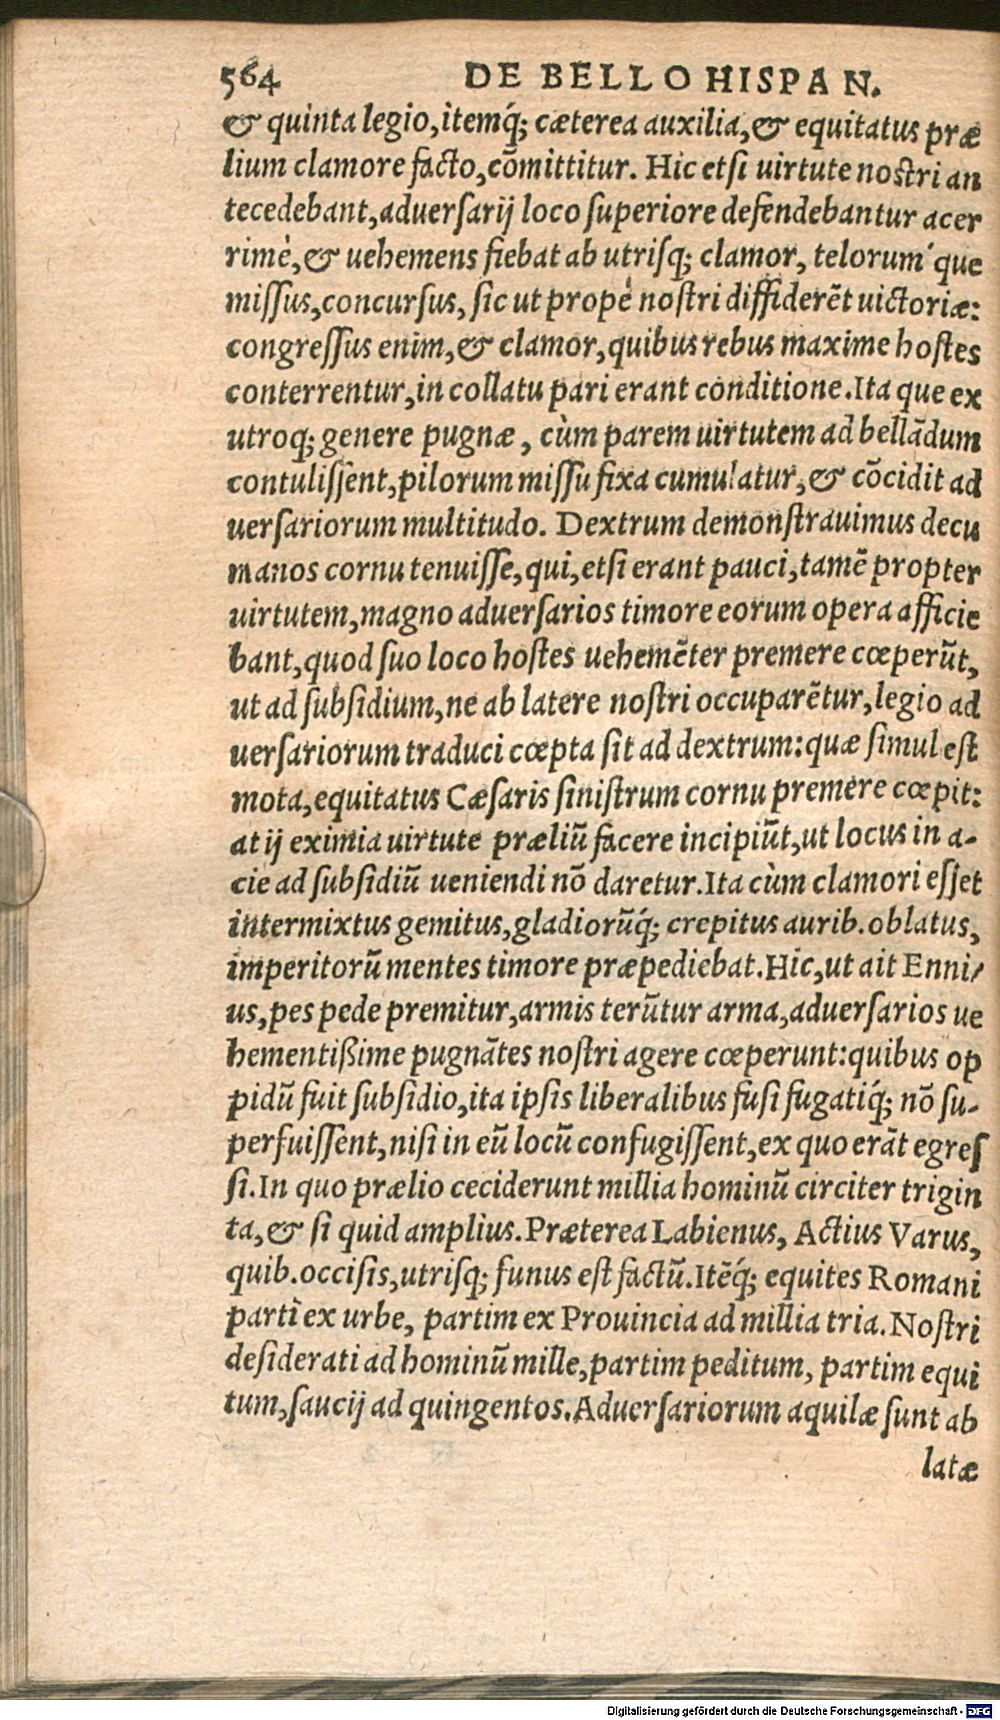 564 DE BELLO HISPAN.
& quinta legio, itemq́; cæterea auxilia, & equitatus præ
lium clamore facto, cōmittitur. Hic etsi uirtute nostri an
tecedebant, aduersarij loco superiore defendebantur acer
rimè, & uehemens fiebat ab utrisq; clamor, telorum´ que
missus, concursus, sic ut propè nostri diffiderēt uictoriæ:
congressus enim, & clamor, quibus rebus maxime hostes
conterrentur, in collatu pari erant conditione. Ita que ex
utroq; genere pugnæ, cùm parem uirtutem ad bellādum
contulissent, pilorum missu fixa cumulatur, & cōcidit ad
uersariorum multitudo. Dextrum demonstrauimus decu
manos cornu tenuisse, qui, etsi erant pauci, tamē propter
uirtutem, magno aduersarios timore eorum opera afficie
bant, quod suo loco hostes uehemēter premere cœperūt,
ut ad subsidium, ne ab latere nostri occuparētur, legio ad
uersariorum traduci cœpta sit ad dextrum: quæ simul est
mota, equitatus Cæsaris sinistrum cornu premere cœpit:
at ij eximia uirtute præliū facere incipiūt, ut locus in a-
cie ad subsidiū ueniendi nō daretur. Ita cùm clamori esset
intermixtus gemitus, gladiorūq́; crepitus aurib. oblatus,
imperitorū mentes timore præpediebat. Hic, ut ait Enni/
us, pes pede premitur, armis terūtur arma, aduersarios ue
hementißime pugnātes nostri agere cœperunt: quibus op
pidū fuit subsidio, ita ipsis liberalibus fusi fugatiq́; nō su-
perfuissent, nisi in eū locū confugissent, ex quo erāt egres
si. In quo prælio ceciderunt millia hominū circiter trigin
ta, & si quid amplius. Præterea Labienus, Actius Varus,
quib. occisis, utrisq; funus est factū. Itēq́; equites Romani
partī ex urbe, partim ex Prouincia ad millia tria. Nostri
desiderati ad hominū mille, partim peditum, partim equi
tum, saucij ad quingentos. Aduersariorum aquilæ sunt ab
latæ
Digitalisierung gefördert durch die Deutsche Forschungsgemeinschaft - DFG